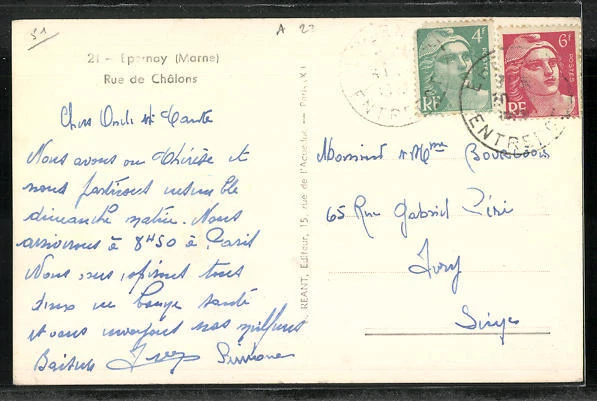 51
A 23
21 - Epernay (Marne)
Rue de Châlons
Chers Oncle et Tante
Nous avons vu Thérèse et
nous partirons ensemble
dimanche matin. Nous
arriverons à 8H50 à Paris
Nous vous espérons tous
deux en bonne santé
et vous envoyons nos meilleurs
Baisers Yves Simone
REANT, Editeur, 15, rue de l'Aqueduc — Paris, X
4F
POSTES
RF
6F
POSTES
RF
ENTREL
ENTREL
Monsieur et Mme Bourgeois
65 Rue Gabriel Péri
Ivry
Seine